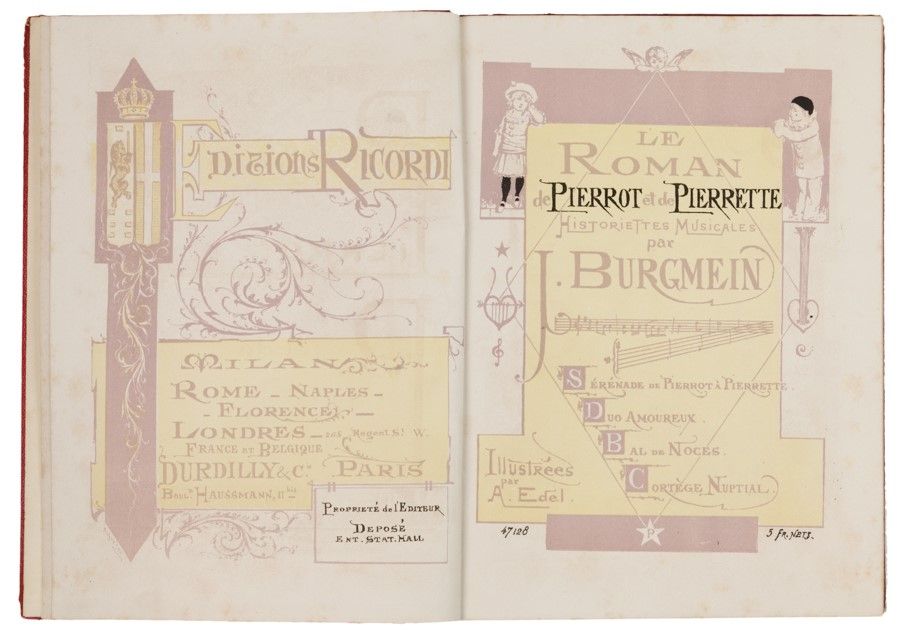 Editions Ricordi
Milan
Rome - Naples -
- Florence -
Londres - 265 Regent St. W.
France et Belgique
Durdilly & Cie. Paris
Bould. Haussmann, 11 bis
Propriété de l'Editeur
Deposé
Ent. Stat. Hall
Le
Roman
de Pierrot et de Pierrette
Historiettes Musicales
par
J. Burgmein
Sérénade de Pierrot à Pierrette.
Duo Amoureux.
Bal de Noces.
Cortège Nuptial.
Illustrées
par
A. Edel.
P
47128
5 Fr. Nets.